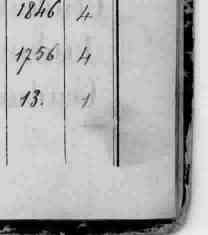 1846 4
1756 4
13. 1